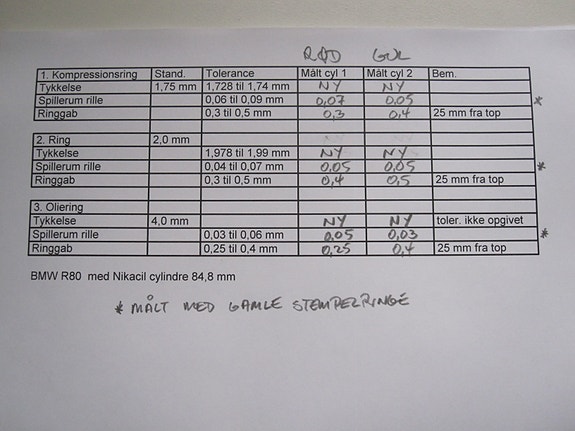 RØD GUL
1. Kompressionsring Stand. Tolerance Målt cyl 1 Målt cyl 2 Bem.
Tykkelse 1,75 mm 1,728 til 1,74 mm NY NY
Spillerum rille 0,06 til 0,09 mm 0,07 0,05 *
Ringgab 0,3 til 0,5 mm 0,3 0,4 25 mm fra top
2. Ring 2,0 mm
Tykkelse 1,978 til 1,99 mm NY NY
Spillerum rille 0,04 til 0,07 mm 0,05 0,05 *
Ringgab 0,3 til 0,5 mm 0,4 0,5 25 mm fra top
3. Oliering
Tykkelse 4,0 mm NY NY toler. ikke opgivet
Spillerum rille 0,03 til 0,06 mm 0,05 0,03 *
Ringgab 0,25 til 0,4 mm 0,25 0,4 25 mm fra top
BMW R80 med Nikacil cylindre 84,8 mm
* MÅLT MED GAMLE STEMPELRINGE